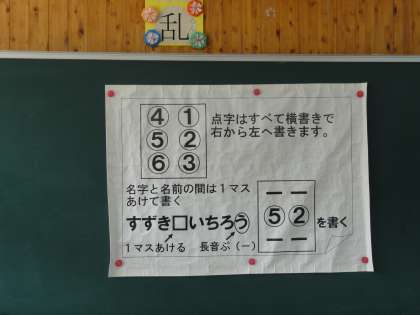 乱
④ ①
⑤ ②
⑥ ③
点字はすべて横書きで
右から左へ書きます。
名字と名前の間は1マス
あけて書く
すずき□いちろう
1マスあける 長音ぶ(ー)
ー ー
⑤ ②
ー ー
を書く